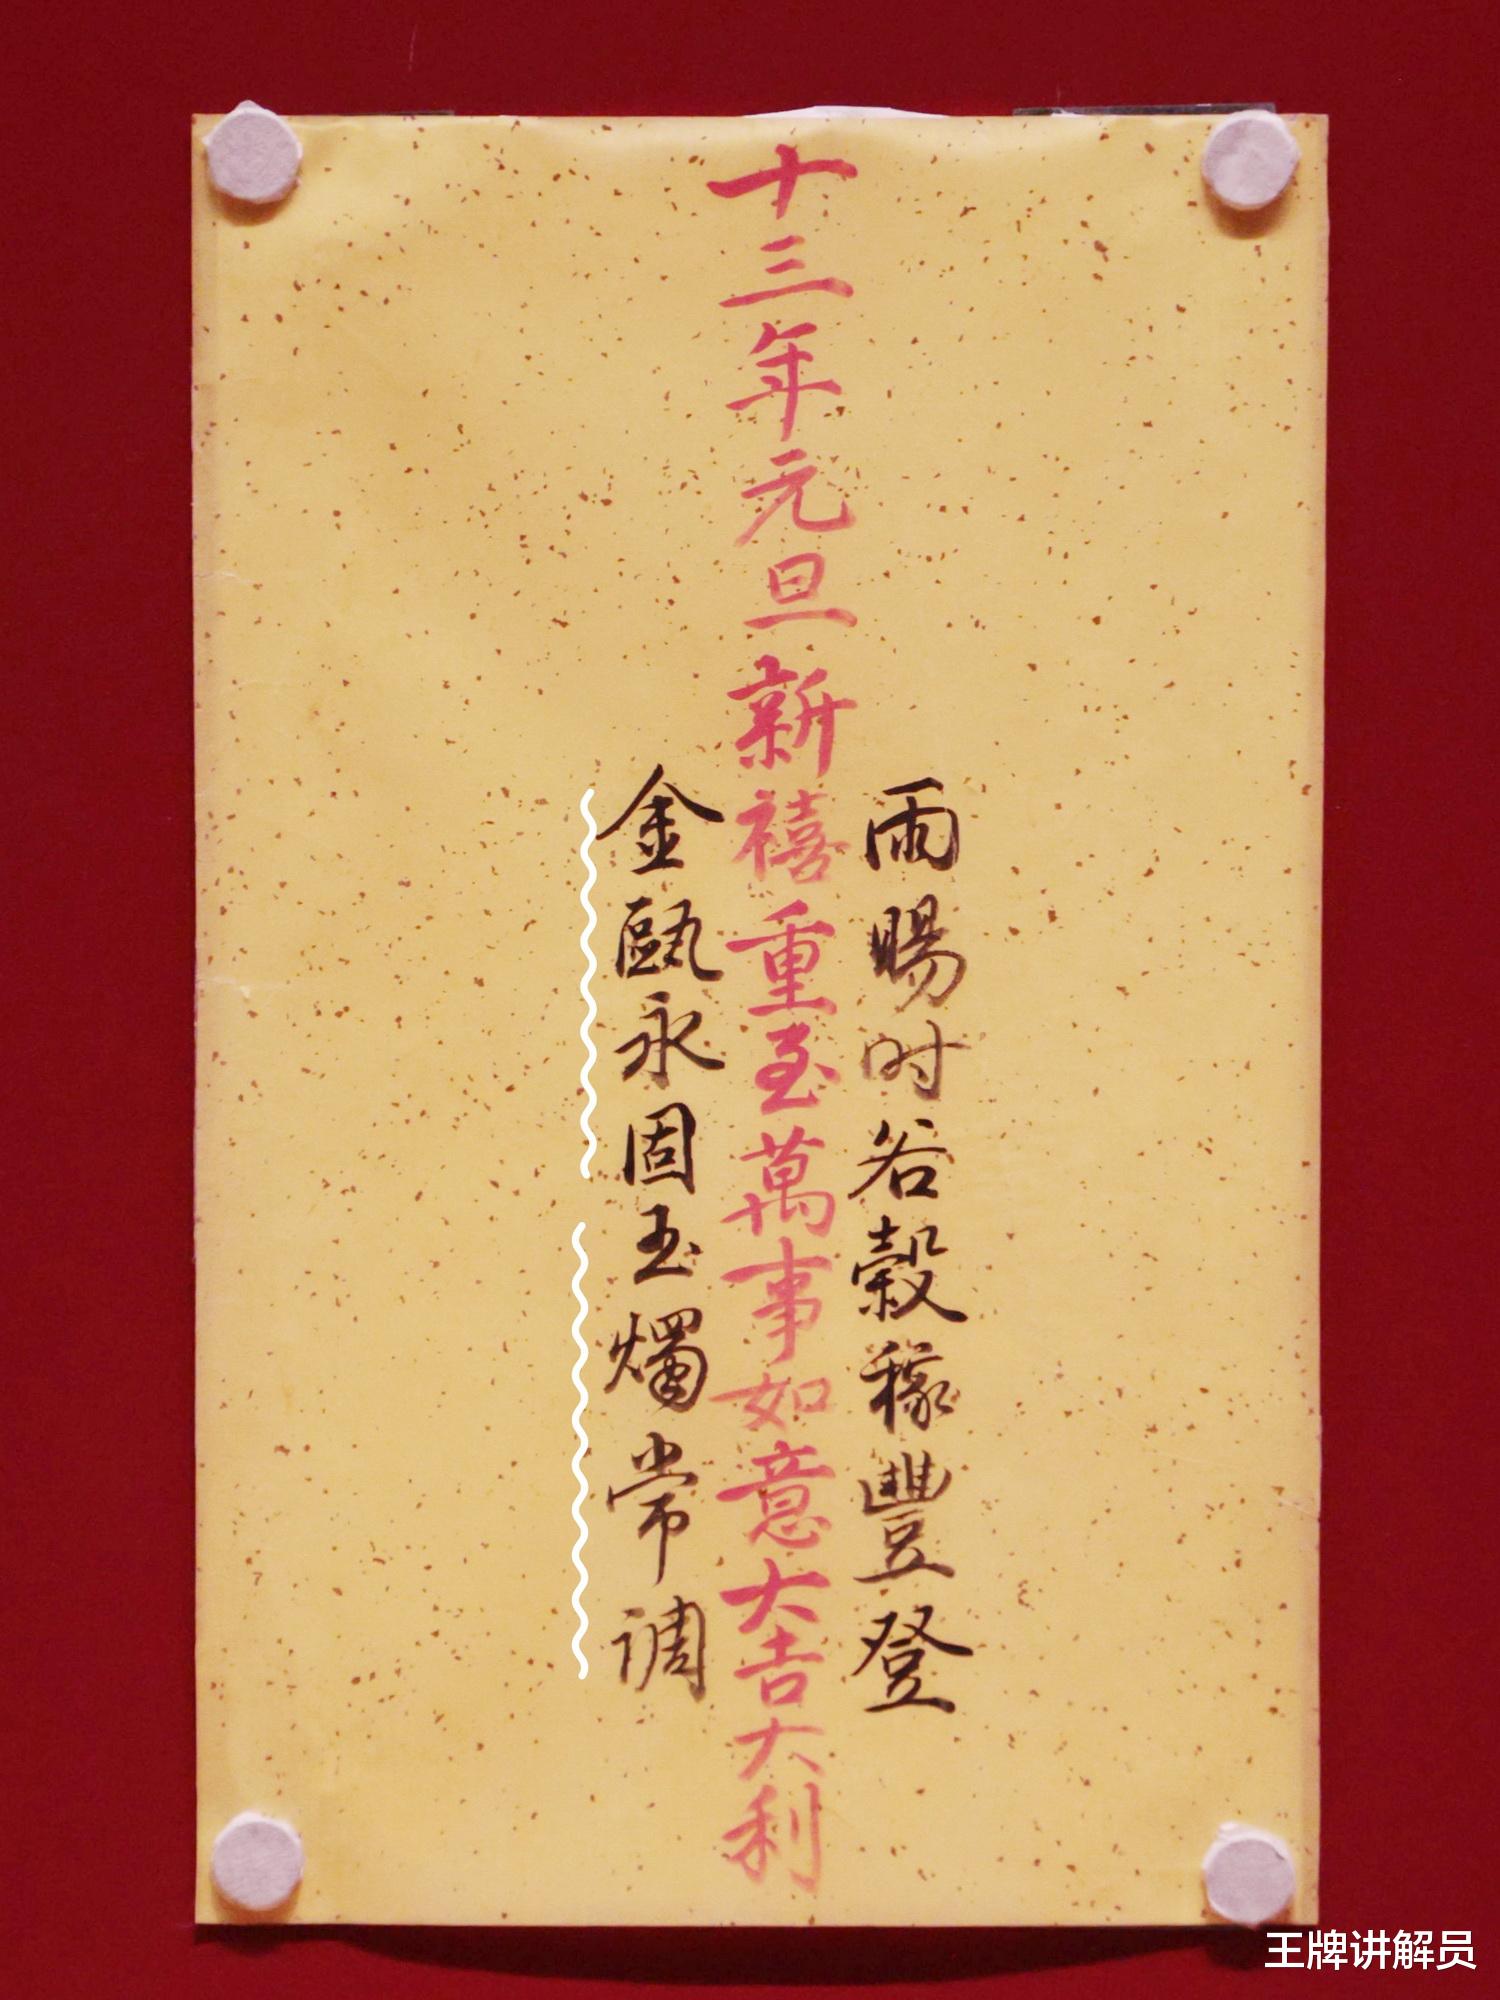 十三年元旦新禧重至萬事如意大吉大利
雨暘时若穀稼豐登
金甌永固玉燭常調
王牌讲解员